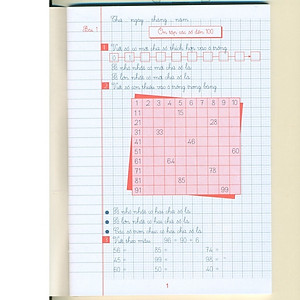 Thứ ngày tháng năm
Bài 1
Ôn tập các số đến 100
1 Viết số có một chữ số thích hợp vào ô trống
Số bé nhất có một chữ số là
Số lớn nhất có một chữ số là
2 Viết số còn thiếu vào ô trong bảng
1 2 3 4 5 6 7 8 9 10
11 15
21 28
31 33
41
51 60
61 64
71 78
81 85
91 99
Số bé nhất có hai chữ số là
Số lớn nhất có hai chữ số là
có hai chữ số là
3 Viết theo mẫu 96 = 90 + 6
56 = 85 = 74 =
45 = 99 = 98 =
60 = 50 = 40 =
1